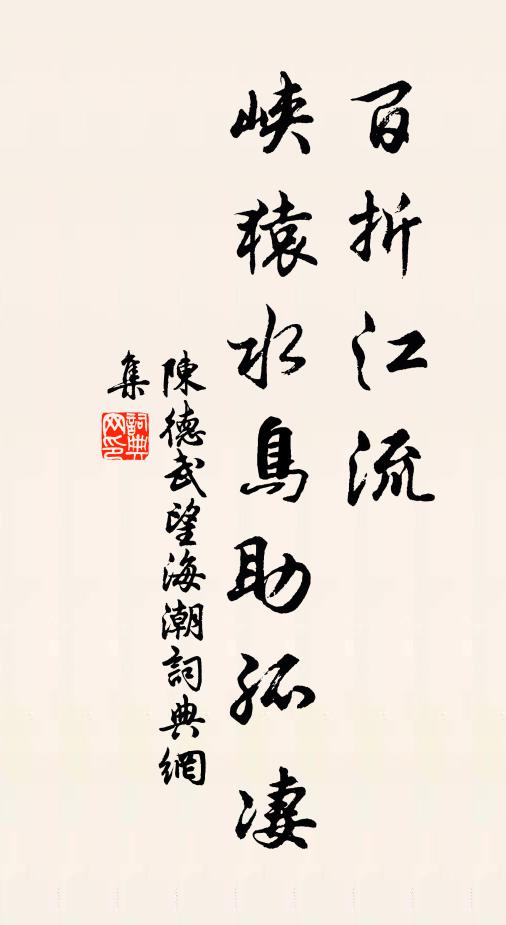 百折江流
峽猿水鳥助孤淒
陳德武望海潮詞典網
集
詞典
网印